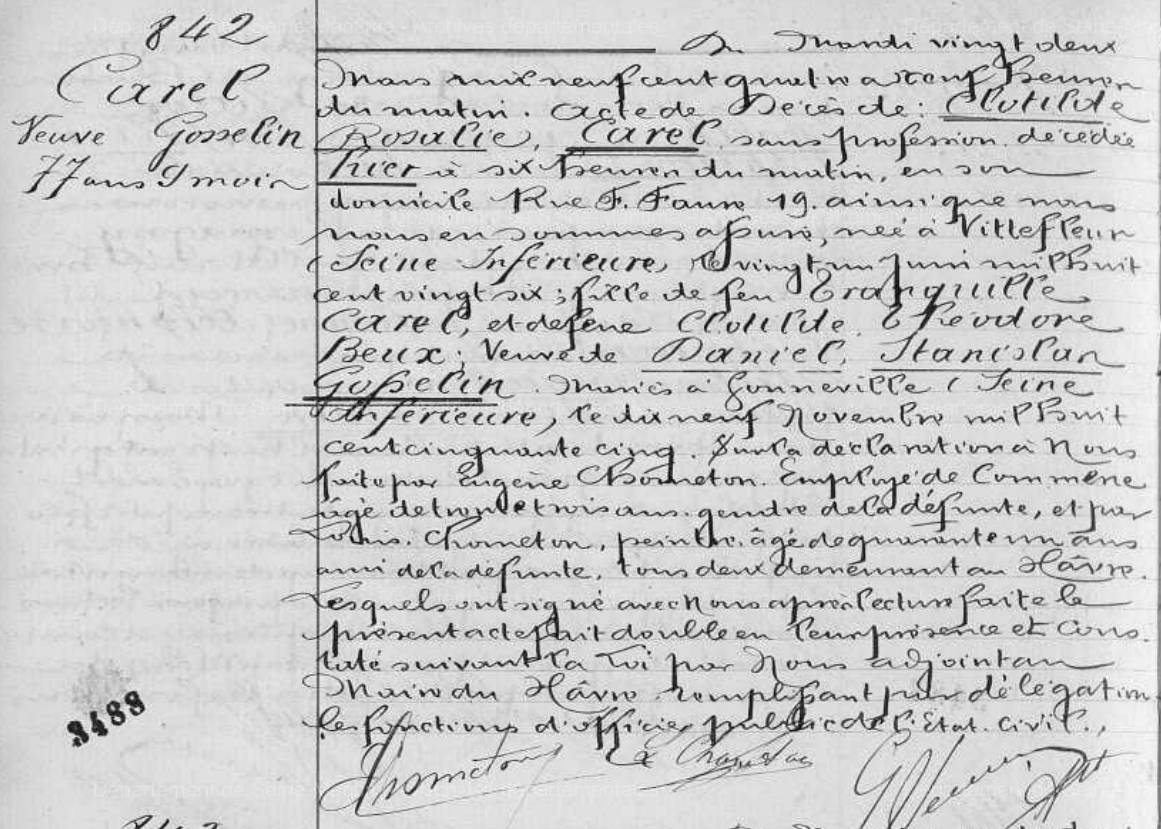 842
Carel
Veuve Gosselin
77 ans 9 mois
Du Mardi vingt deux
Mars mil neuf cent quatre a neuf heures
du matin. Acte de Décès de: Clotilde
Rosalie, Carel sans profession décédée
hier à six heures du matin, en son
domicile Rue F. Faure 19. ainsi que nous
nous en sommes assuré, née à Vittefleur
(Seine Inférieure) le vingt un Juin mil huit
cent vingt six; fille de feu Tranquille
Carel, et de feue Clotilde Théodore
Beux; Veuve de Daniel, Stanislas
Gosselin. Mariés à Gonneville (Seine
Inférieure), le dix neuf Novembre mil huit
cent cinquante cinq. Sur la déclaration à Nous
faite par Eugène Chometon. Employé de Commerce
âgé de trente trois ans. gendre de la défunte, et par
Louis Chometon, peintre. âgé de quarante un ans
ami de la défunte. tous deux demeurant au Hâvre.
Lesquels ont signé avec Nous après lecture faite le
présent acte fait double en leur présence et Cons.
taté suivant la Loi par Nous adjoint au
Maire du Hâvre remplissant par délégation
les fonctions d'officier public de l'Etat. Civil.,
8488
Chometon